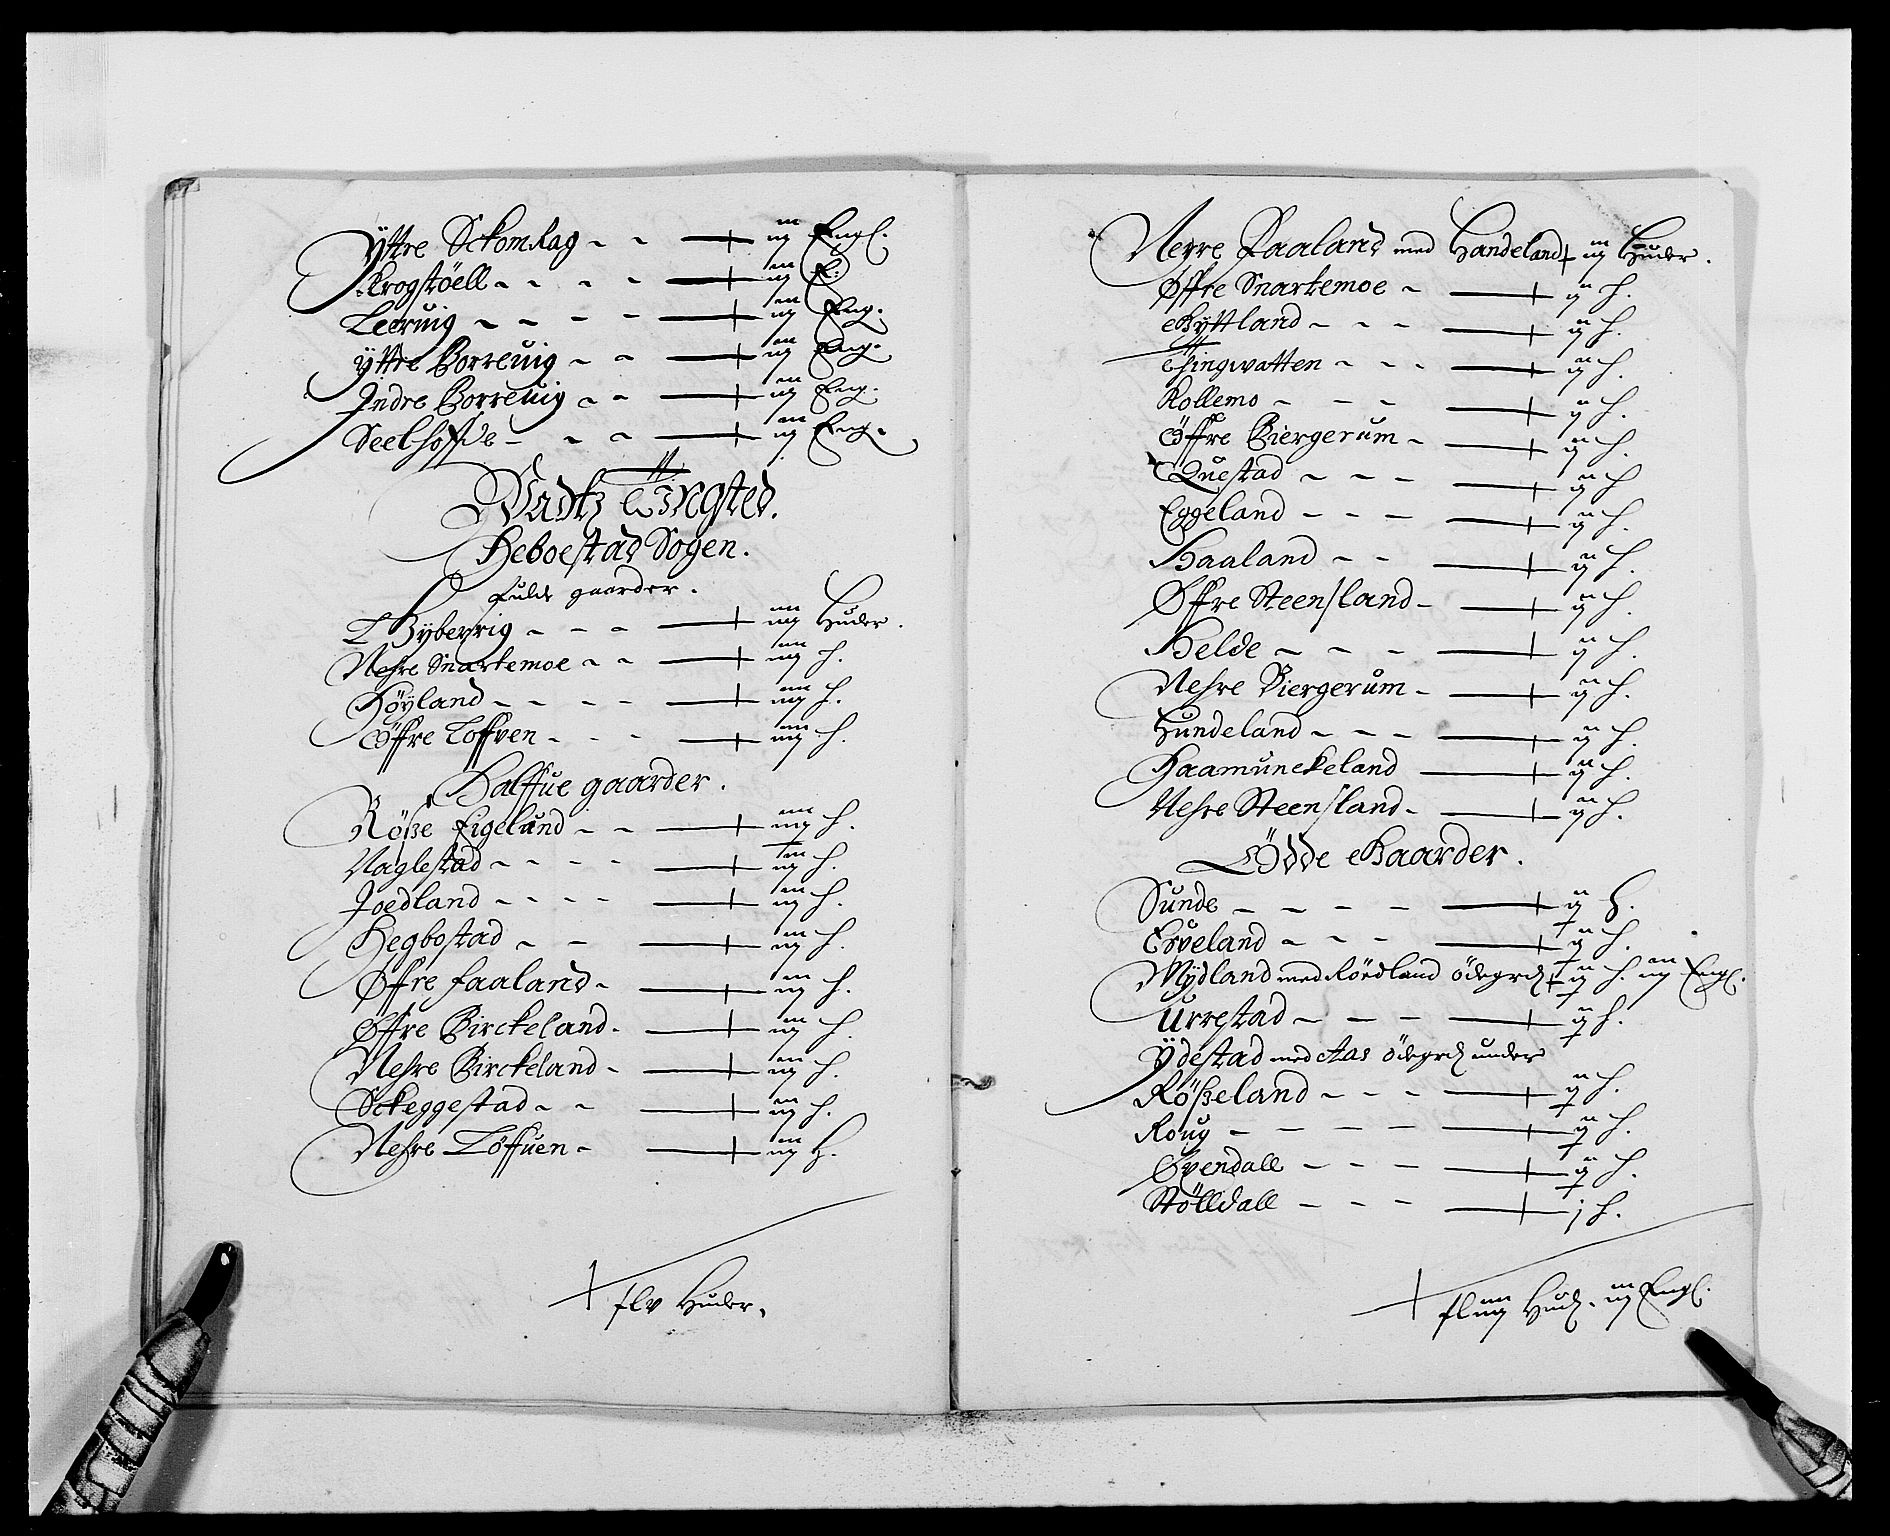 Ÿttre Sckomdag - - —+ iij Engl.
Krogstöell - - - - —+ iij E:
Leervig - - - - —+ iij Eng.
ÿttre Borrevig - - —+ iij Eng.
Indre Borrevig - - —+ iij Eng.
Seelhoffde - - - —+ iij Eng.
Vadtz Tingsted.
Heboestad Sogen.
Fulde gaarder.
Gyberrig - - - —+ iiij Huder.
Nehre Snartemoe - - —+ iiij h.
Höyland - - - - —+ iiij h.
Øffre Loffven - - - —+ iiij h.
Halffue gaarder.
Röße Eigeland - - —+ iiij h.
Naglestad - - - - —+ h.
Joedland - - - - —+ iij h.
Hegbostad - - —+ iij h.
Øffre faaland - —+ iij h.
Øffre Birckeland - —+ iij h.
Nehre Birckeland - —+ iij h.
Sckeggestad - - —+ iij h.
Nehre Löffuen - —+ iij H.
+ flv Huder.
Nerre Faaland med Handeland + iij Huder.
Øffre Snartemoe - —+ ij h.
Gyttland - - - —+ ij h.
Tingvatten - - - —+ ij h.
Rollemo - - - —+ ij h.
Øffre Biergerum - —+ ij h.
Questad - - - —+ ij h
Eggeland - - - —+ ij h.
Haaland - - —+ ij h.
Øffre Steensland - —+ ij h.
Helde - - - —+ ij h.
Nehre Biergerum - —+ ij h.
Hundeland - - - —+ ij h.
Haamunekeland —+ ij h.
Nehre Steensland - —+ ij h.
Ödde Gaarder.
Sunde - - - - —+ ij h.
Erveland - - - —+ h.
Mÿdland med Röedland ödegrd + h. iij Engl.
Urrestad - - - —+ h.
Ydestad med Aas ödegrd under
Rößeland - - - —+ h.
Roug - - - - —+ h.
Øvendall - - - —+ h.
Stölldall - - - —+ j h.
+ fl iiij Hud. iij Engl.